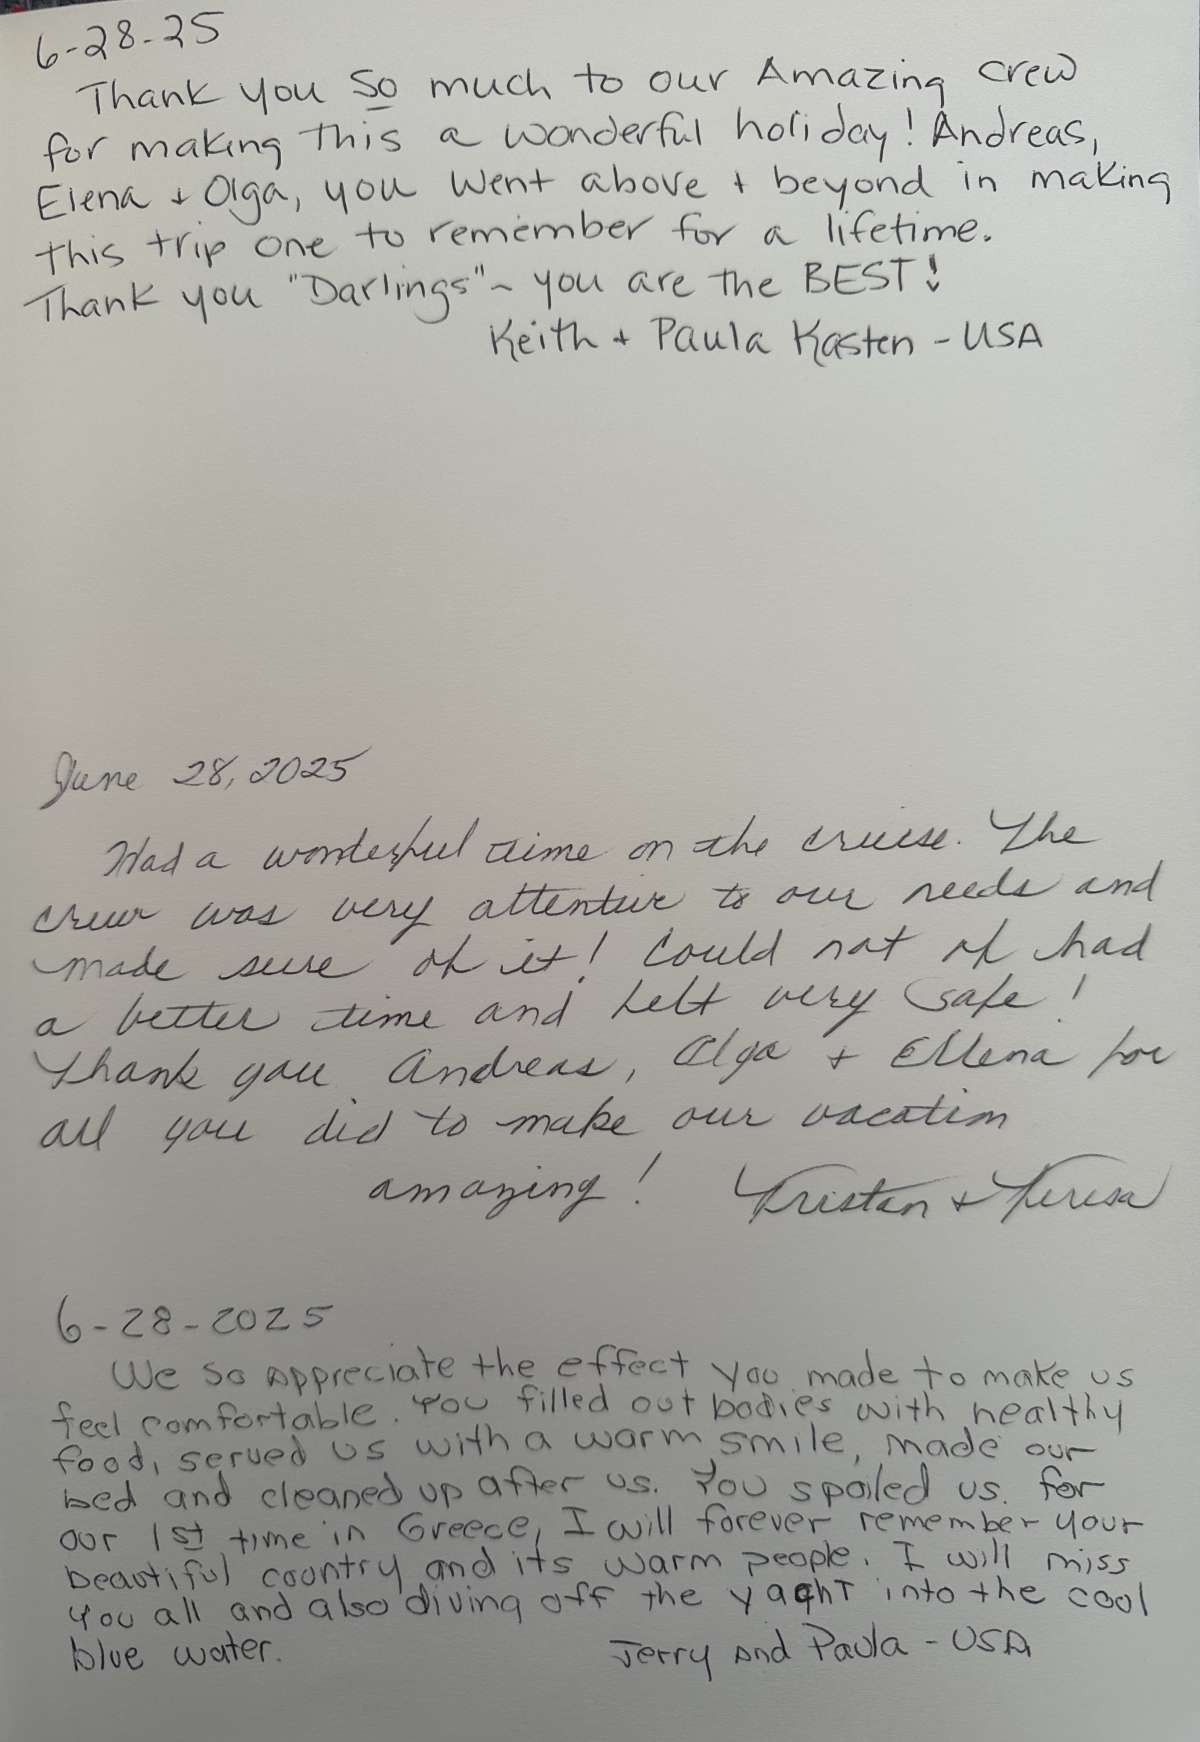 6-28-25
Thank you so much to our Amazing crew
for making this a wonderful holiday! Andreas,
Elena + Olga, you went above + beyond in making
this trip one to remember for a lifetime.
Thank you "Darlings" ~ you are the BEST!
Keith + Paula Kasten - USA
June 28, 2025
Had a wonderful time on the cruise. The
crew was very attentive to our needs and
made sure of it! Could not of had
a better time and felt very safe!
Thank you Andreas, Olga + Ellena for
all you did to make our vacation
amazing! Tristan + Teresa
6-28-2025
We so appreciate the effect you made to make us
feel comfortable. You filled out bodies with healthy
food, served us with a warm smile, made our
bed and cleaned up after us. You spoiled us. for
our 1st time in Greece, I will forever remember your
beautiful country and its warm people. I will miss
you all and also diving off the yacht into the cool
blue water. Jerry and Paula - USA